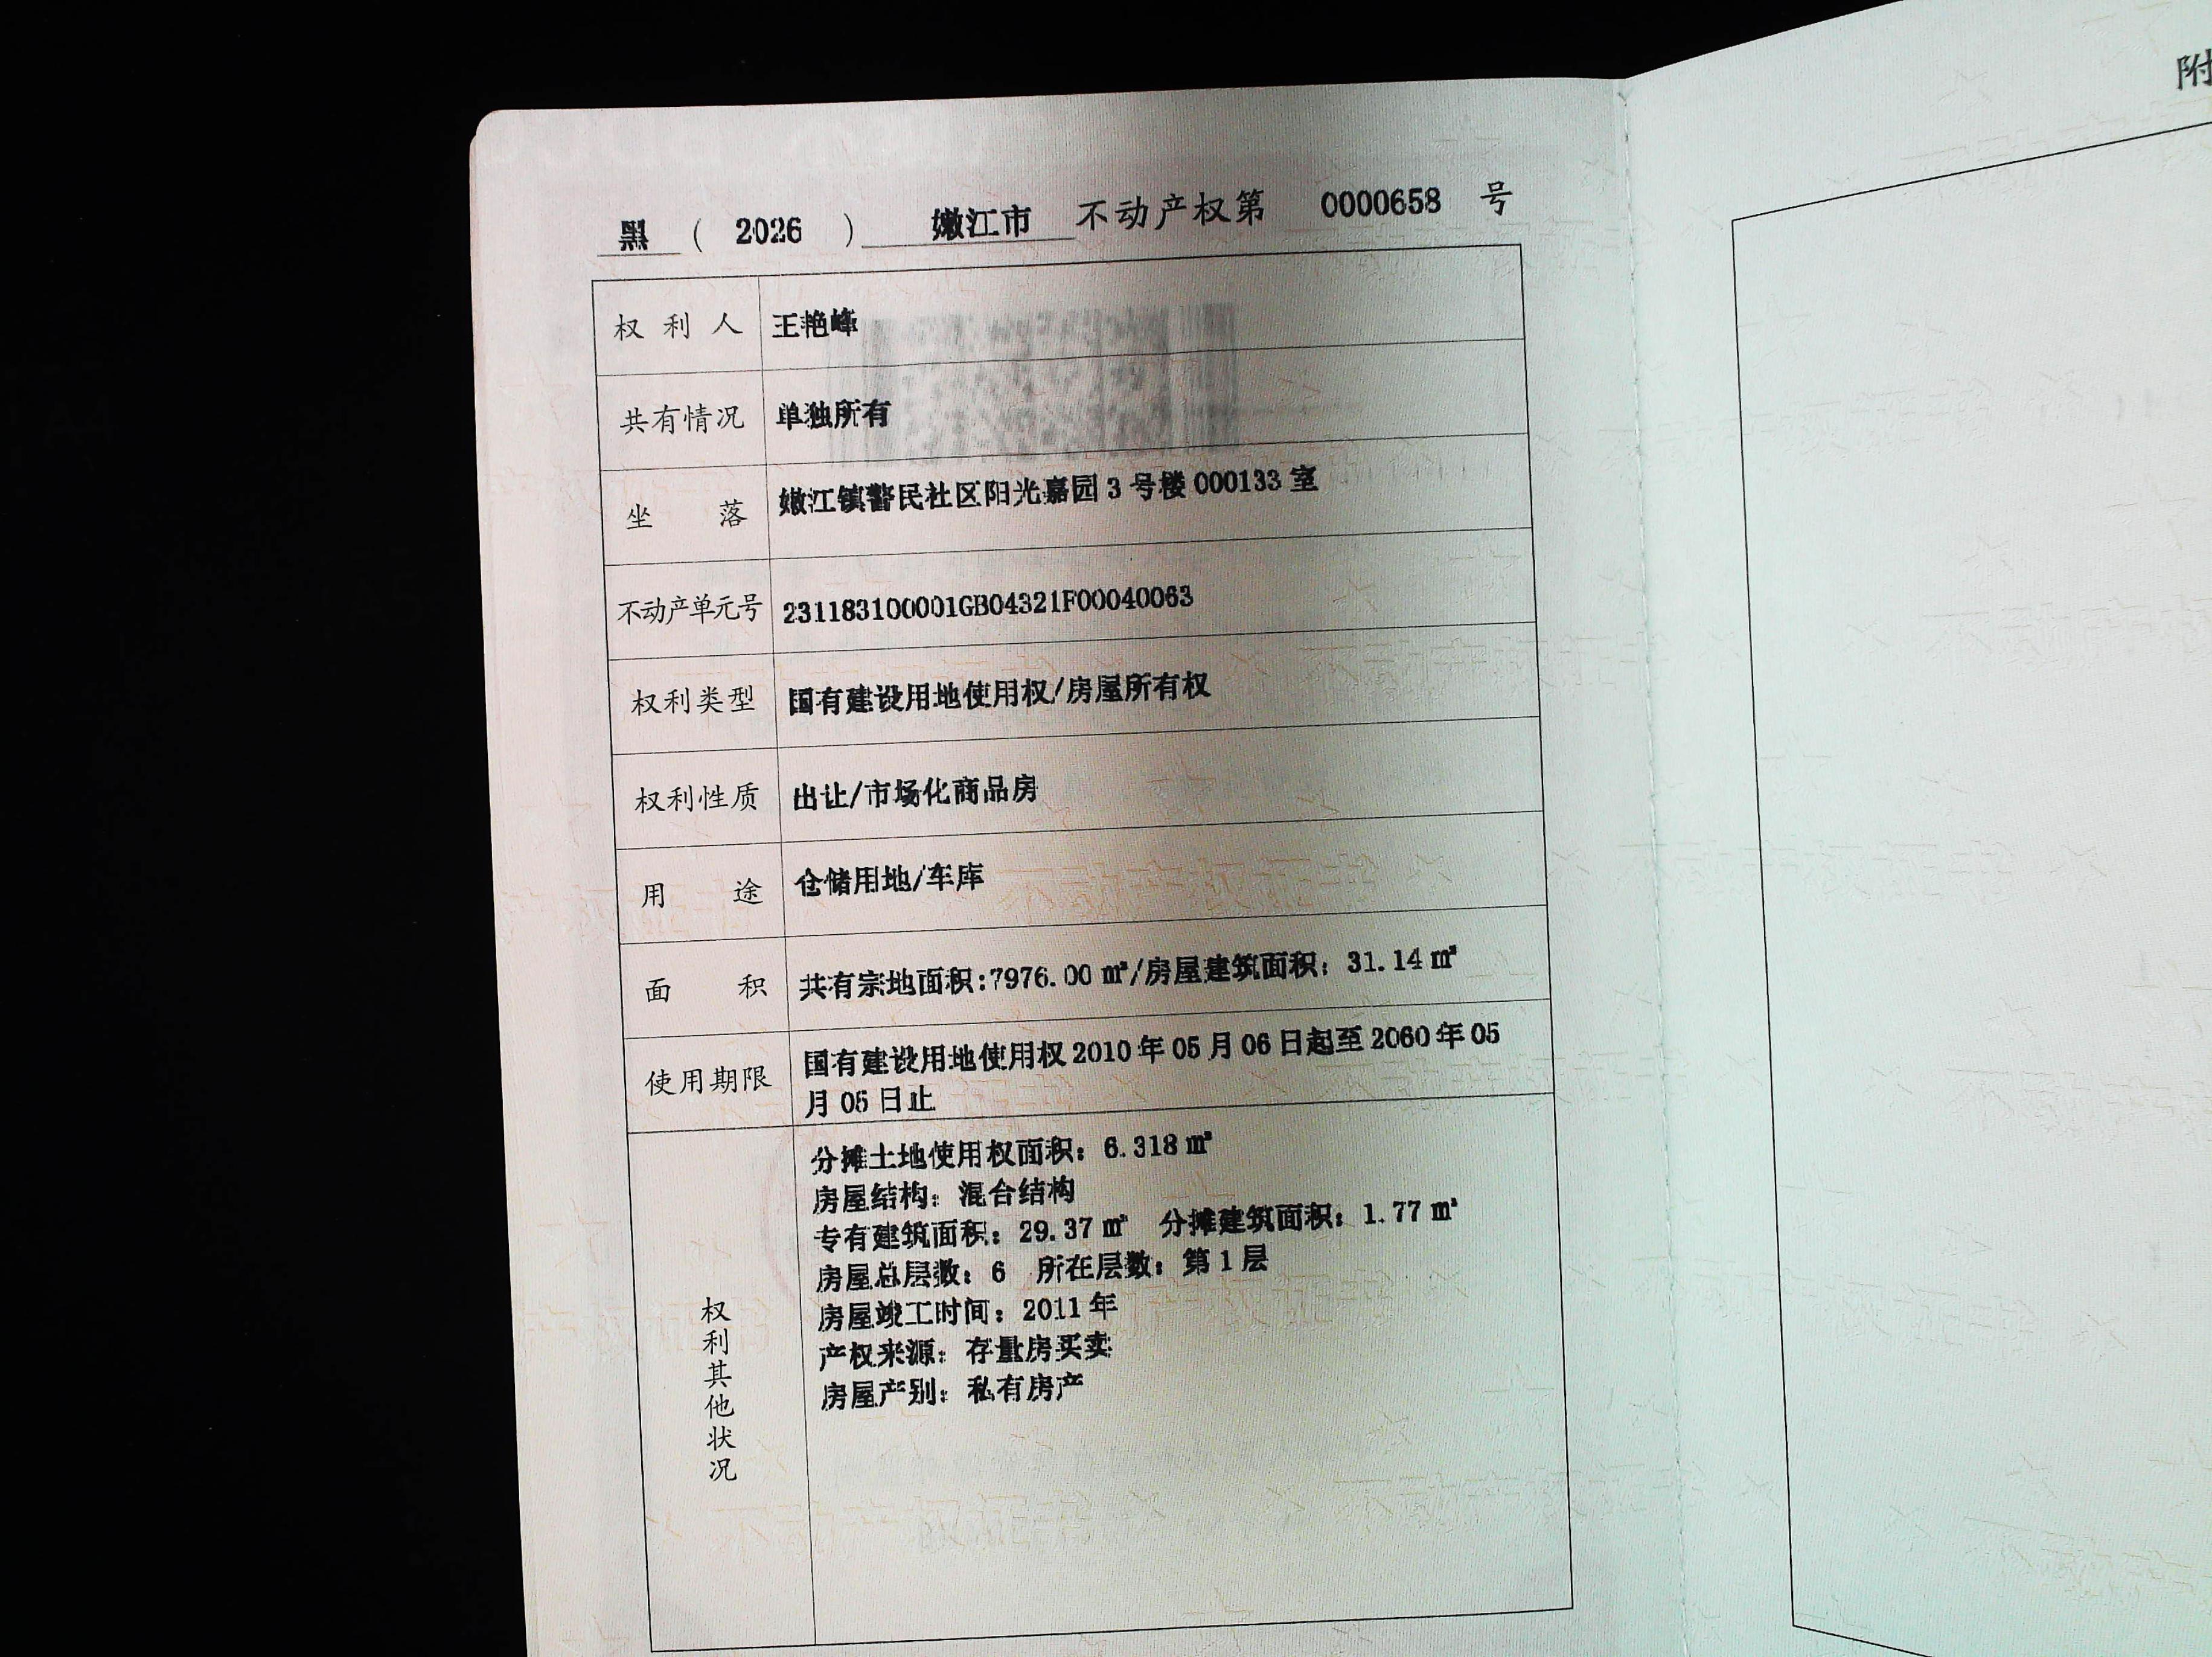 黑 （ 2026 ） 嫩江市 不动产权第 0000658 号
权利人 王艳峰
共有情况 单独所有
坐落 嫩江镇警民社区阳光嘉园 3 号楼 000133 室
不动产单元号 231183100001GB04321F00040063
权利类型 国有建设用地使用权/房屋所有权
权利性质 出让/市场化商品房
用途 仓储用地/车库
面积 共有宗地面积:7976.00 ㎡/房屋建筑面积：31.14 ㎡
使用期限 国有建设用地使用权 2010 年 05 月 06 日起至 2060 年 05
月 05 日止
权利其他状况
分摊土地使用权面积：6.318 ㎡
房屋结构：混合结构
专有建筑面积：29.37 ㎡ 分摊建筑面积：1.77 ㎡
房屋总层数：6 所在层数：第 1 层
房屋竣工时间：2011 年
产权来源：存量房买卖
房屋产别：私有房产
附